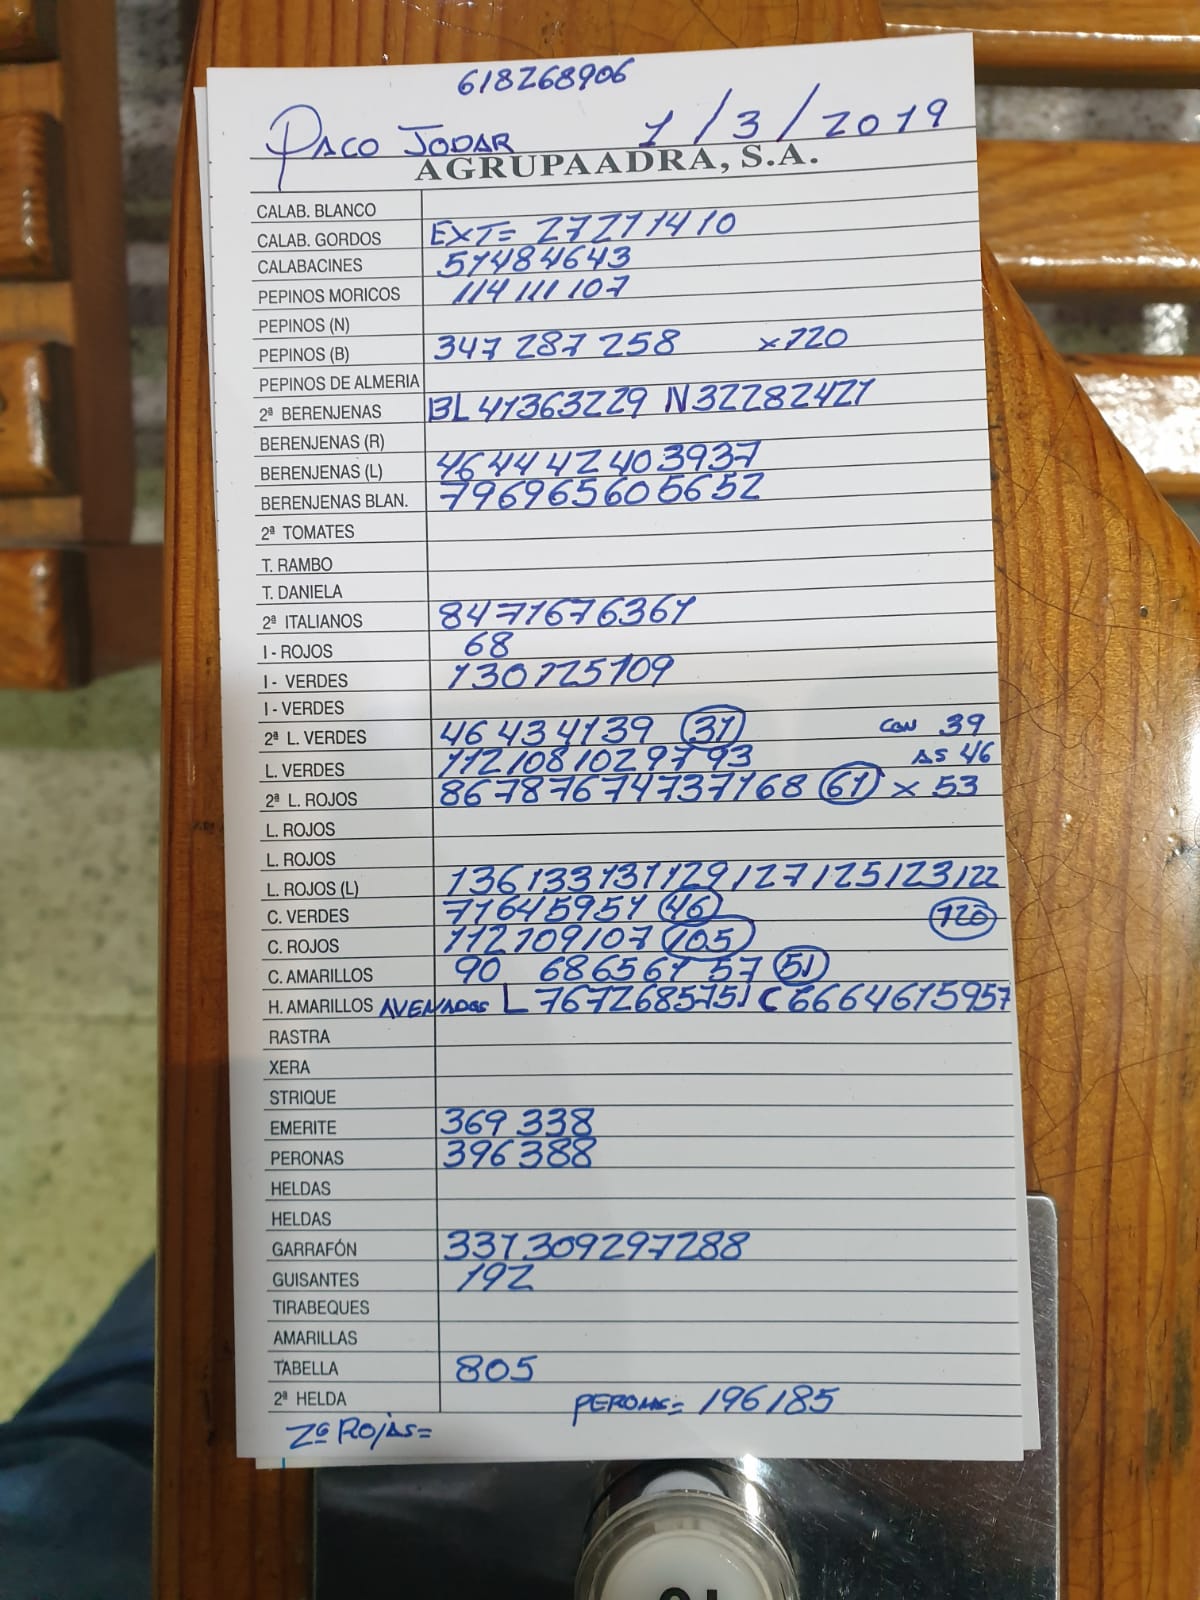 618268906
PACO JODAR 1/3/2019
AGRUPAADRA, S.A.
CALAB. BLANCO
CALAB. GORDOS EXT= 27211410
CALABACINES 51484643
PEPINOS MORICOS 114 111 107
PEPINOS (N)
PEPINOS (B) 347 287 258 x120
PEPINOS DE ALMERIA
2ª BERENJENAS BL 41363229 N32282421
BERENJENAS (R)
BERENJENAS (L) 464442403937
BERENJENAS BLAN. 796965605652
2ª TOMATES
T. RAMBO
T. DANIELA
2ª ITALIANOS 8471676361
I - ROJOS 68
I - VERDES 130125109
I - VERDES
2ª L. VERDES 46434139 (31) CON 39
L. VERDES 1121081029793 AS 46
2ª L. ROJOS 86787674737168 (61) x 53
L. ROJOS
L. ROJOS
L. ROJOS (L) 136133131129127125123122
C. VERDES 71645951 (46) (120)
C. ROJOS 112109107 (105)
C. AMARILLOS 90 686561 57 (51)
H. AMARILLOS L 7672685751 C 6664615957
RASTRA
XERA
STRIQUE
EMERITE 369 338
PERONAS 396388
HELDAS
HELDAS
GARRAFÓN 331309297288
GUISANTES 192
TIRABEQUES
AMARILLAS
TABELLA 805
2ª HELDA PERONAS= 196185
2ª ROJAS=